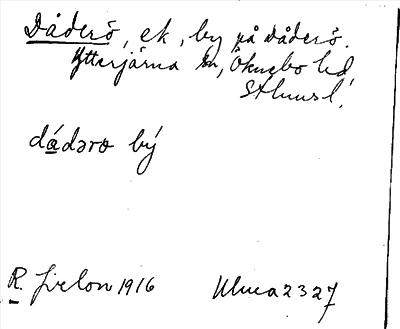 Dåderö, ek, by på Dåderö.
Ytterjärna sn, Öknebo hd
Sthmsl.
dádərœ bý
R. Jirlow 1916 Uluca 2327